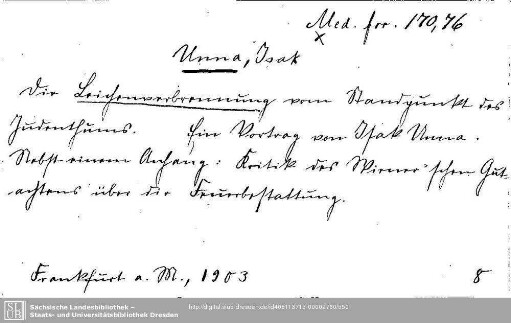 Med. for. 170,76
x
Unna, Isak
Die Leichenverbrennung vom Standpunkt des
Judenthums. Ein Vortrag von Isak Unna.
Nebst einem Anhang: Kritik des Wiener'schen Gut-
achtens über die Feuerbestattung.
Frankfurt a. M., 1903 8
Sächsische Landesbibliothek –
Staats- und Universitätsbibliothek Dresden